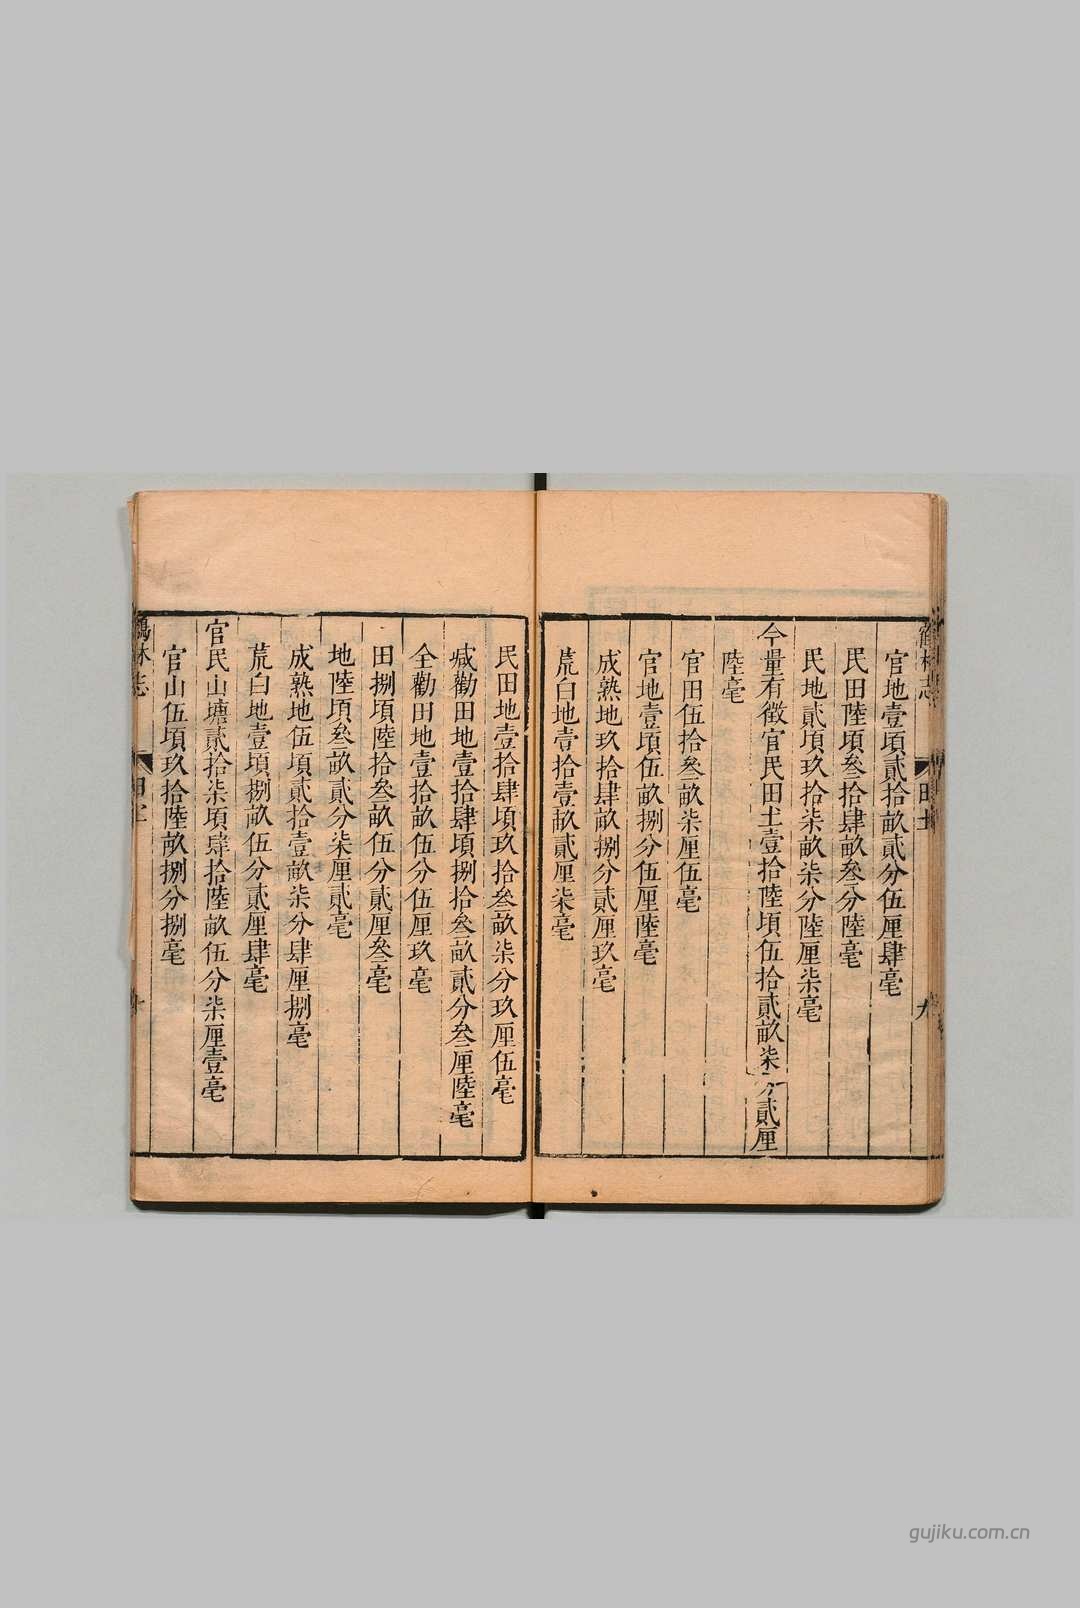 官地壹頃貳拾畝貳分伍厘肆毫
民田陸頃叁拾肆畝叁分陸毫
民地貳頃玖拾柒畝柒分陸厘柒毫
今量有徵官民田土壹拾陸頃伍拾貳畝柒分貳厘
陸毫
官田伍拾叁畝柒厘伍毫
官地壹頃伍畝捌分伍厘陸毫
成熟地玖拾肆畝捌分貳厘玖毫
荒白地壹拾壹畝貳厘柒毫
民田地壹拾肆頃玖拾叁畝柒分玖厘伍毫
減勸田地壹拾肆頃捌拾叁畝貳分叁厘陸毫
全勸田地壹拾畝伍分伍厘玖毫
田捌頃陸拾叁畝伍分貳厘叁毫
地陸頃叁畝貳分柒厘貳毫
成熟地伍頃貳拾壹畝柒分肆厘捌毫
荒白地壹頃捌畝伍分貳厘肆毫
官民山塘貳拾柒頃肆拾陸畝伍分柒厘壹毫
官山伍頃玖拾陸畝捌分捌毫
鶴林志
gujiku.com.cn